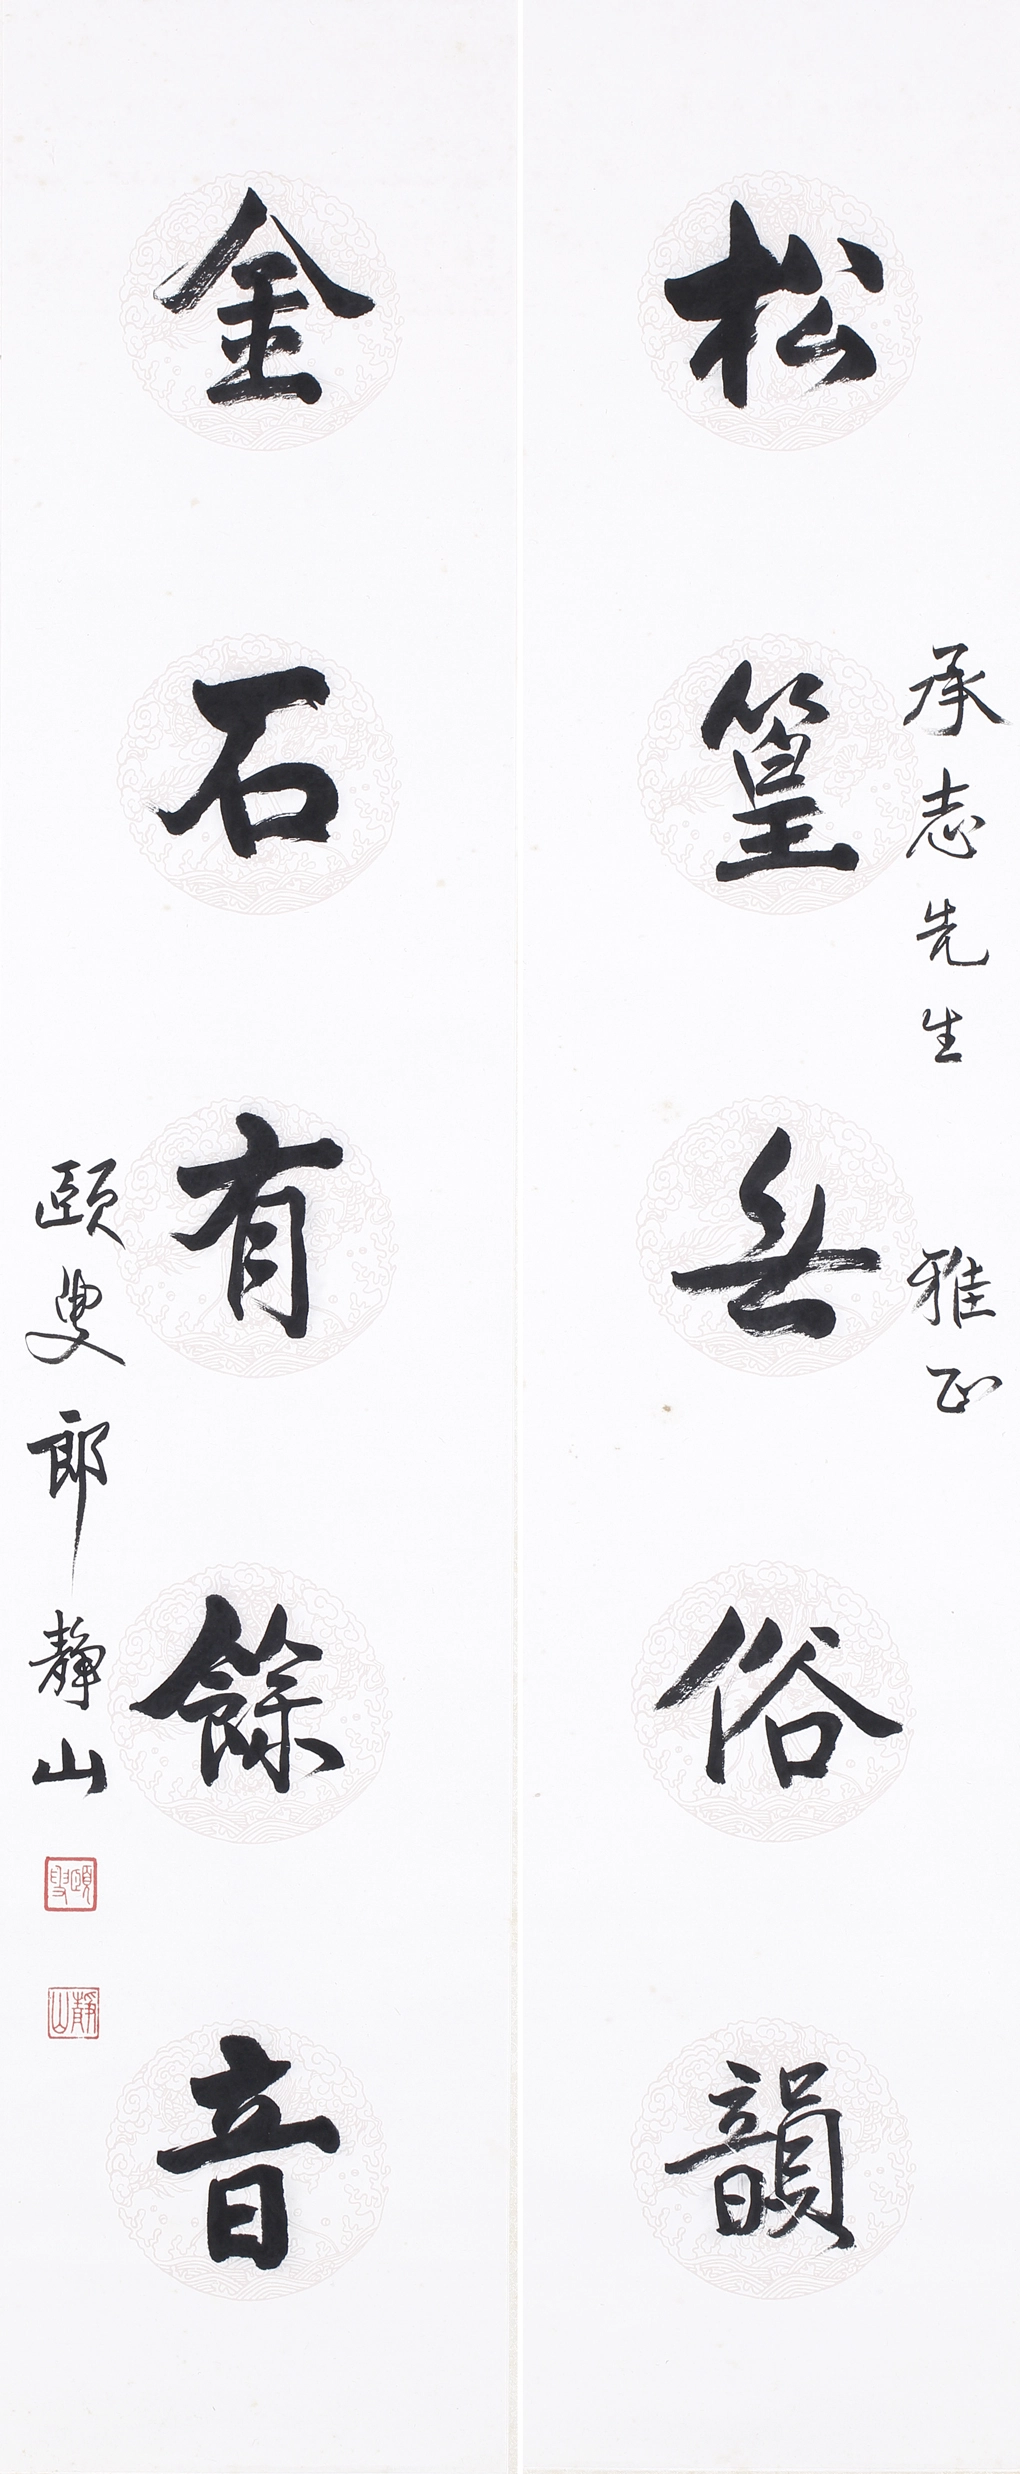 承志先生 雅正
松篁無俗韻
金石有餘音
頤叟郎靜山
頤叟
靜山